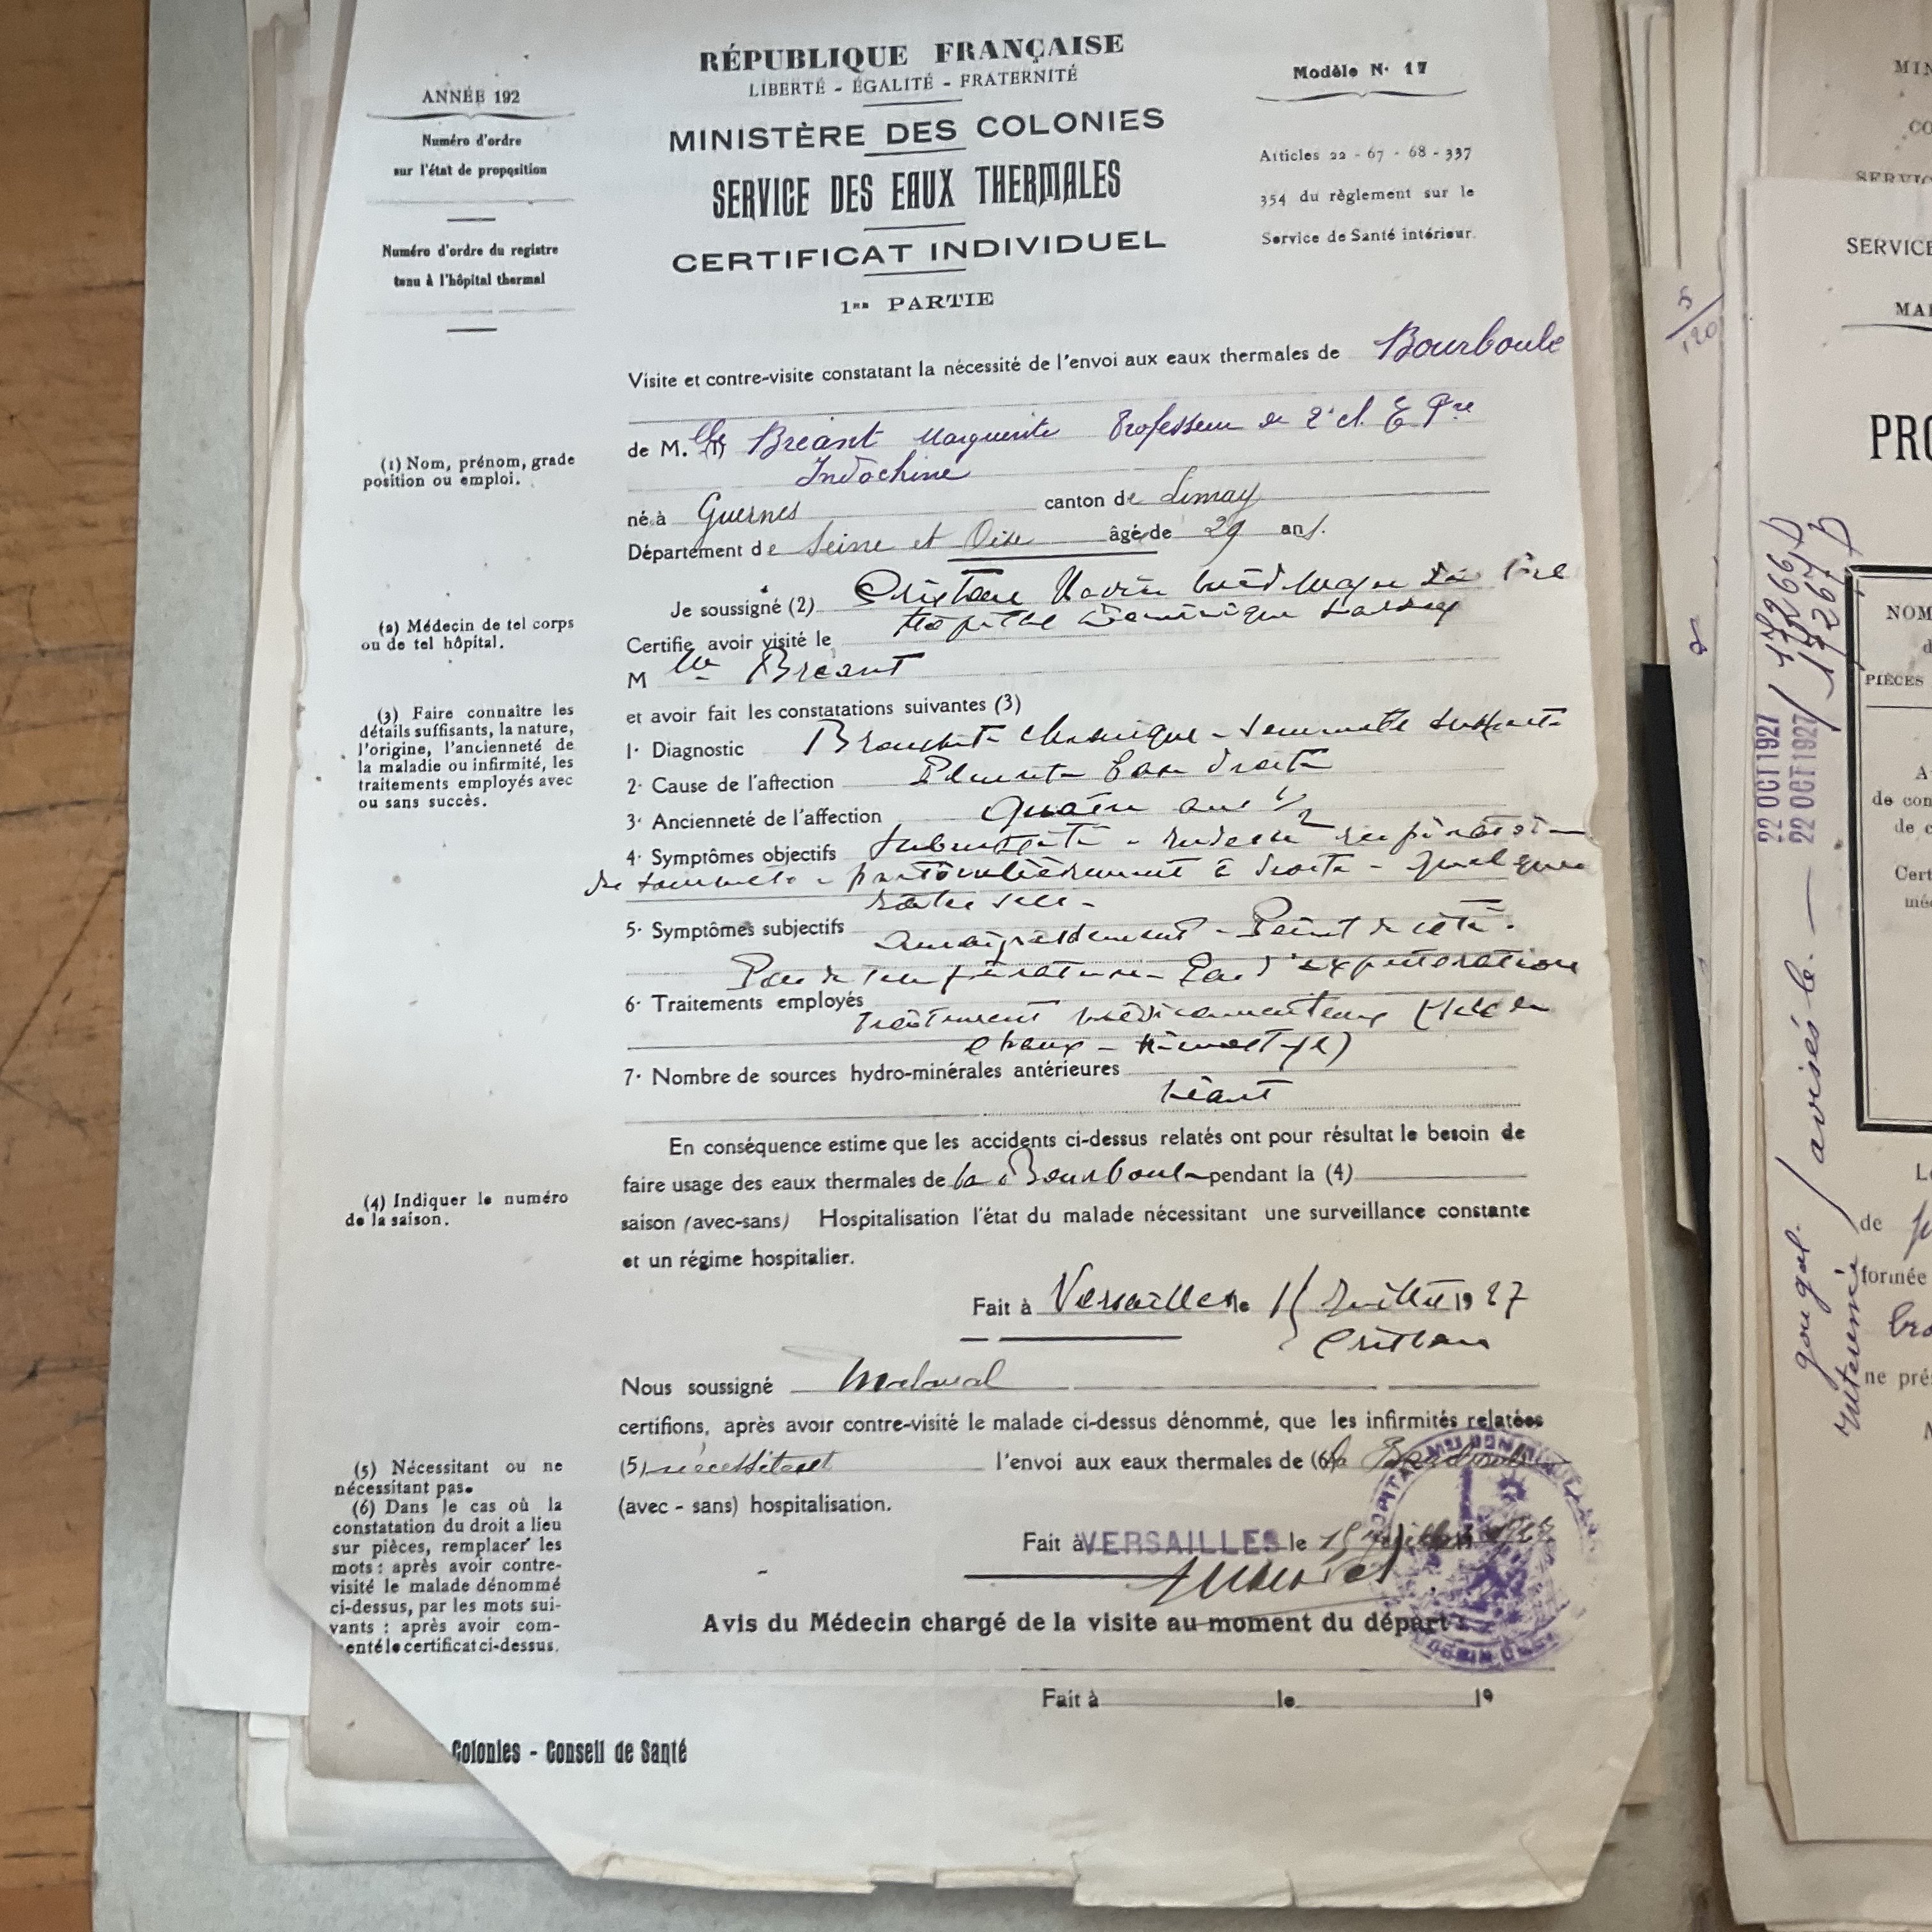 RÉPUBLIQUE FRANÇAISE
LIBERTÉ - ÉGALITÉ - FRATERNITÉ
MINISTÈRE DES COLONIES
SERVICE DES EAUX THERMALES
CERTIFICAT INDIVIDUEL
1re PARTIE
ANNÉE 192
Numéro d'ordre
sur l'état de proposition
Numéro d'ordre du registre
tenu à l'hôpital thermal
Modèle N° 17
Articles 22 - 67 - 68 - 337
354 du règlement sur le
Service de Santé intérieur.
Visite et contre-visite constatant la nécessité de l'envoi aux eaux thermales de Bourboule
de M. lle (1) Bréant Marguerite Professeur de 2e cl. E Pre
Indochine
(1) Nom, prénom, grade
position ou emploi.
né à Guernes canton de Limay
Département de Seine et Oise âgé de 29 ans.
Je soussigné (2)
Hopital Dominique Larrey
Certifie avoir visité le
M lle Bréant
(2) Médecin de tel corps
ou de tel hôpital.
et avoir fait les constatations suivantes (3)
(3) Faire connaître les
détails suffisants, la nature,
l'origine, l'ancienneté de
la maladie ou infirmité, les
traitements employés avec
ou sans succès.
1· Diagnostic Bronchite chronique - sommets suspects
2· Cause de l'affection Pleurite base droite
3· Ancienneté de l'affection Quatre ans 1/2
4· Symptômes objectifs Submatité - rudesse respiration
des sommets - particulièrement à droite - quelques
râles secs -
5· Symptômes subjectifs Amaigrissement - Point de côté.
Pas de température - Pas d'expectoration
6· Traitements employés Traitement médicamenteux
chaux -
7· Nombre de sources hydro-minérales antérieures
Néant
En conséquence estime que les accidents ci-dessus relatés ont pour résultat le besoin de
faire usage des eaux thermales de la Bourboule pendant la (4)
saison (avec-sans) Hospitalisation l'état du malade nécessitant une surveillance constante
et un régime hospitalier.
(4) Indiquer le numéro
de la saison.
Fait à Versailles le 15 Juillet 1927
Nous soussigné Malaval
certifions, après avoir contre-visité le malade ci-dessus dénommé, que les infirmités relatées
(5) nécessitent l'envoi aux eaux thermales de (6) la Bourboule
(avec - sans) hospitalisation.
(5) Nécessitant ou ne
nécessitant pas.
(6) Dans le cas où la
constatation du droit a lieu
sur pièces, remplacer les
mots : après avoir contre-
visité le malade dénommé
ci-dessus, par les mots sui-
vants : après avoir com-
enté le certificat ci-dessus.
Fait à VERSAILLES le 15 juillet
Avis du Médecin chargé de la visite au moment du départ
Fait à le 19
Colonies - Conseil de Santé
MIN
CO
SERVIC
SERVICE
MAI
PRO
NOM
d
PIÈCES
A
de con
de c
Cert
mé
de
formée
ne pré
5/120
22 OCT 1927 / 17266 D
22 OCT 1927 / 17267 D
avisés le